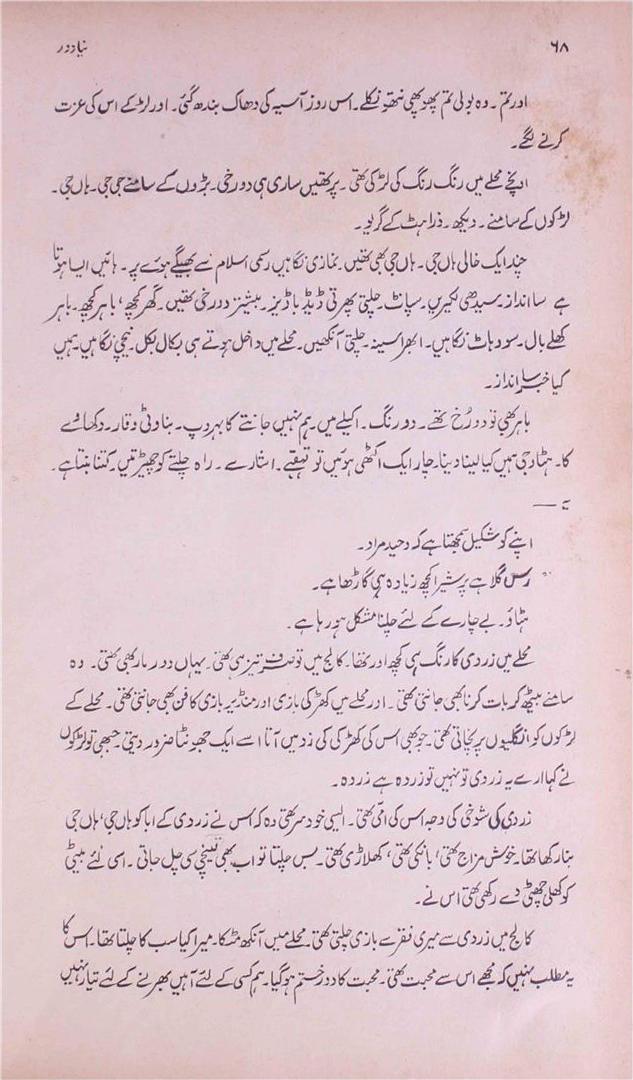 ۶۸
نیا دور
اور تم۔ وہ بولی تم پھوپھی نتھو نکلے۔ اس روز آسیہ کی دھاک بندھ گئی۔ اور لڑکے اس کی عزت
کرنے لگے۔
اپنے محلے میں رنگ رنگ کی لڑکی تھی۔ پر تھیں ساری ہی دو رخی۔ بڑوں کے سامنے جی جی۔ ہاں جی۔
لڑکوں کے سامنے۔ دیکھ۔ ذرا ہٹ کے گریو۔
چند ایک خالی ہاں جی۔ ہاں جی بھی تھیں۔ نمازی نگاہیں رسمی اسلام سے بھیگے ہوئے پر۔ ہائیں ایسا ہوتا
ہے سا انداز۔ سیدھی لکیریں۔ سپاٹ۔ چلتی پھرتی ڈیڈ باڈیز۔ بیشتر دو رخی تھیں۔ گھر کچھ، باہر کچھ۔ باہر
کھلے بال۔ سو وہاٹ نگاہیں۔ ابھرا سینہ۔ چلتی آنکھیں۔ محلے میں داخل ہوتے ہی بکال بکل۔ نیچی نگاہیں۔ ہمیں
کیا خبر سا انداز۔
باہر بھی تو دو رُخ تھے۔ دو رنگ۔ اکیلے میں۔ ہم نہیں جانتے کا بہروپ۔ بناوٹی وقار۔ دکھاوے
کا۔ ہٹاؤ جی ہمیں کیا لینا دینا۔ چار ایک اکٹھی ہوئیں تو قہقہے۔ اشارے۔ راہ چلتے کو چھیڑتیں۔ کتنا بنتا ہے۔
یہ —
اپنے کو شکیل سمجھتا ہے کہ وحید مراد۔
رس گلا ہے پر شیرا کچھ زیادہ ہی گاڑھا ہے۔
ہٹاؤ۔ بے چارے کے لئے چلنا مشکل ہو رہا ہے۔
محلے میں زردی کا رنگ ہی کچھ اور تھا۔ کالج میں تو صرف تیز ہی تھی۔ یہاں دو دھار بھی تھی۔ وہ
سامنے بیٹھ کر بات کرنا بھی جانتی تھی۔ اور محلے میں کھڑکی بازی اور منڈیر بازی کا فن بھی جانتی تھی۔ محلے کے
لڑکوں کو انگلیوں پر نچاتی تھی۔ جو بھی اس کی کھڑکی کی زد میں آتا اسے ایک جھونٹا ضرور دیتی۔ جبھی تو لڑکوں
نے کہا ارے یہ زردی تو نہیں تو زردہ ہے زردہ۔
زردی کی شوخی کی وجہ اس کی امّی تھی۔ ایسی خود سر تھی وہ کہ اس نے زردی کے ابا کو ہاں جی، ہاں جی
بنا رکھا تھا۔ خوش مزاج تھی، بانکی تھی، کھلاڑی تھی۔ بس چلتا تو اب بھی قینچی سی چل جاتی۔ اسی لئے بیٹی
کو کھلی چھٹی دے رکھی تھی اس نے۔
کالج میں زردی سے میری فقرے بازی چلتی تھی۔ محلے میں آنکھ مٹکا۔ میرا کیا سب کا چلتا تھا۔ اس کا
یہ مطلب نہیں کہ مجھے اس سے محبت تھی۔ محبت کا دور ختم ہو گیا۔ ہم کسی کے لئے آہیں بھرنے کے لئے تیار نہیں